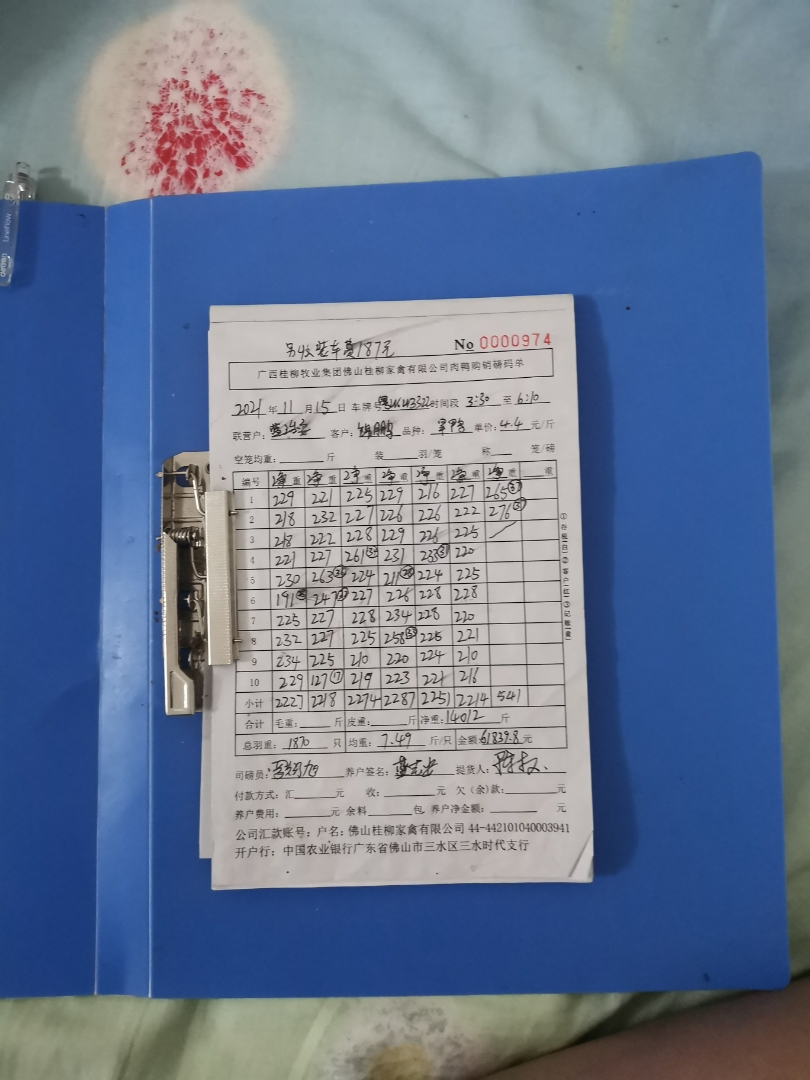 另收装车费187元
No 0000974
广西桂柳牧业集团佛山桂柳家禽有限公司肉鸭购销磅码单
2021年11月15日 车牌号 时间段 3:30 至 6:10
联营户: 客户: 鹏 品种: 单价: 4.4 元/斤
空笼均重: 斤 装 羽/笼 称 笼/磅
编号 净重 净重 净重 净重 净重 净重 净重 重
1 229 221 225 229 216 227 265㉟
2 218 232 227 226 226 222 276
3 218 222 228 229 226 225
4 221 227 261 231 233 220
5 230 263 224 211 224 225
6 191 247 227 226 228 228
7 225 227 228 234 228 220
8 232 227 225 258 225 221
9 234 225 210 220 224 210
10 229 127⑰ 219 223 221 216
小计 2227 2218 2274 2287 2251 2214 541
合计 毛重: 斤 皮重: 斤 净重: 14012 斤
总羽重: 1870 只 均重: 7.49 斤/只 金额: 61839.8 元
司磅员: 养户签名: 提货人:
付款方式: 汇 元 收: 元 欠(余)款: 元
养户费用: 元 余料 包 养户净金额: 元
公司汇款账号: 户名: 佛山桂柳家禽有限公司 44-442101040003941
开户行: 中国农业银行广东省佛山市三水区三水时代支行
①存根(白)②客户(红)③记账(黄)